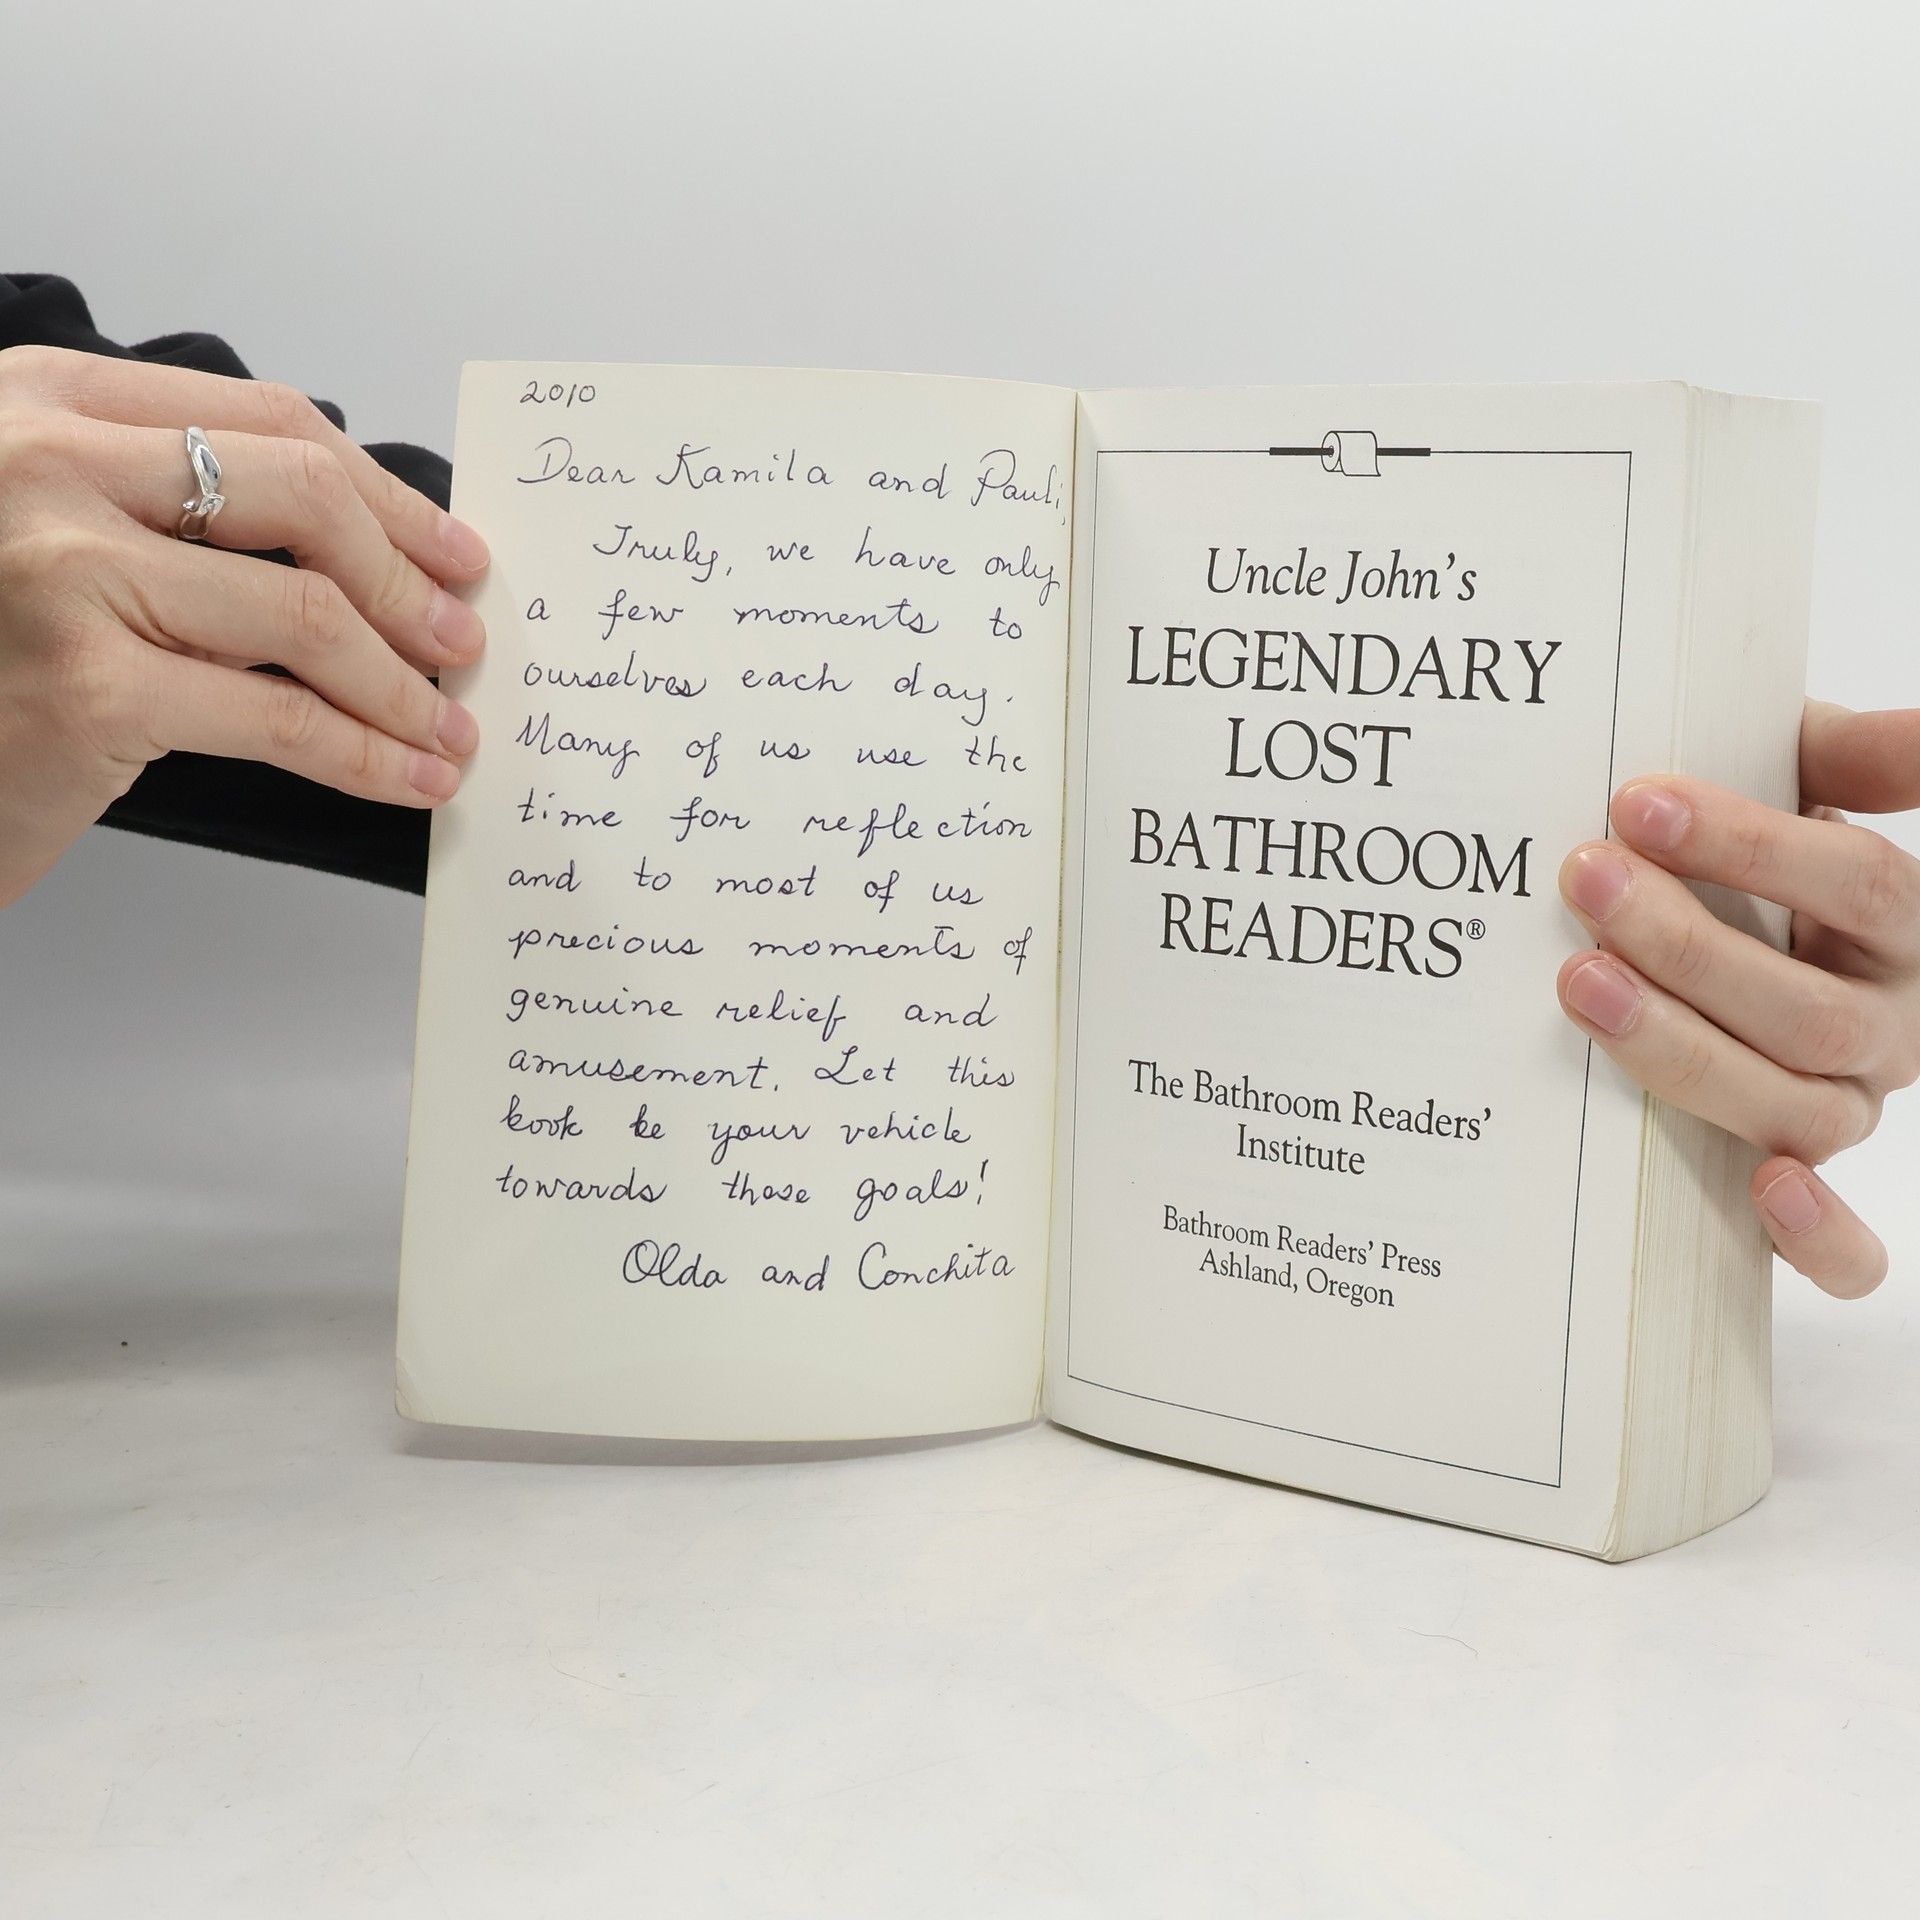 2010
Dear Kamila and Pauli,
Truly, we have only
a few moments to
ourselves each day.
Many of us use the
time for reflection
and to most of us
precious moments of
genuine relief and
amusement. Let this
book be your vehicle
towards these goals!
Olda and Conchita
Uncle John's
LEGENDARY
LOST
BATHROOM
READERS®
The Bathroom Readers'
Institute
Bathroom Readers' Press
Ashland, Oregon